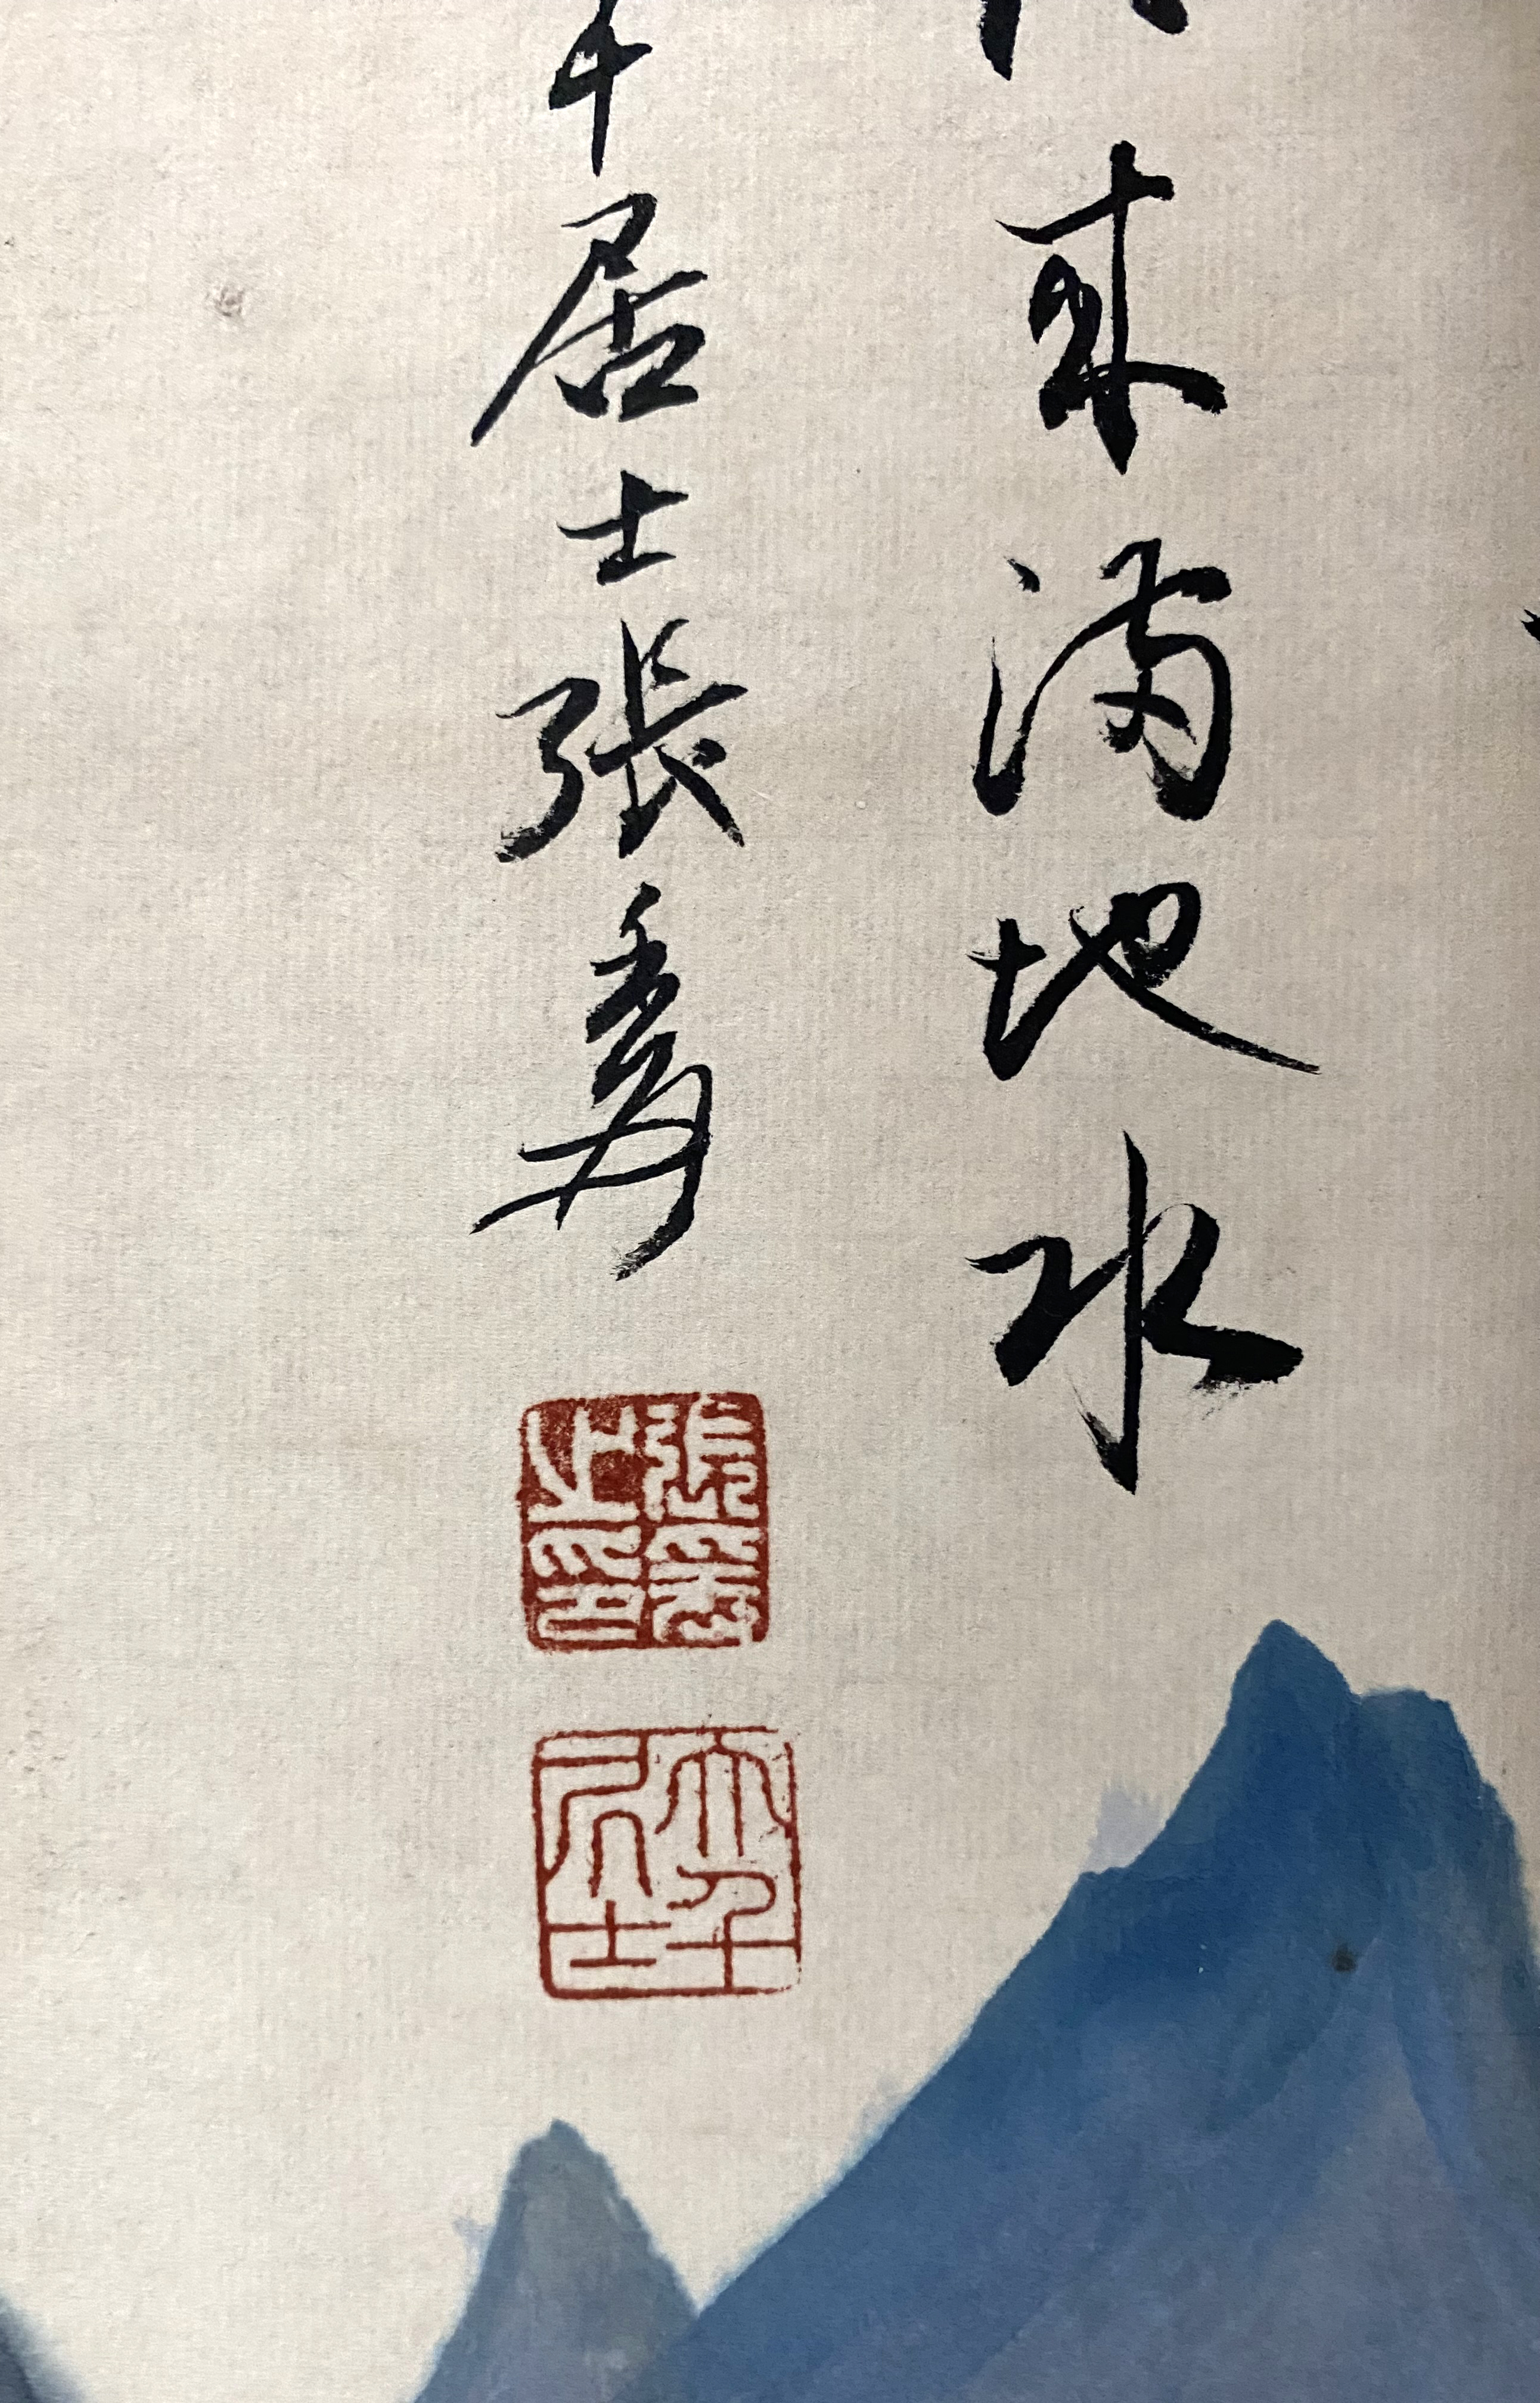 來滿地水
千居士張爰
張爰之印
大千居士